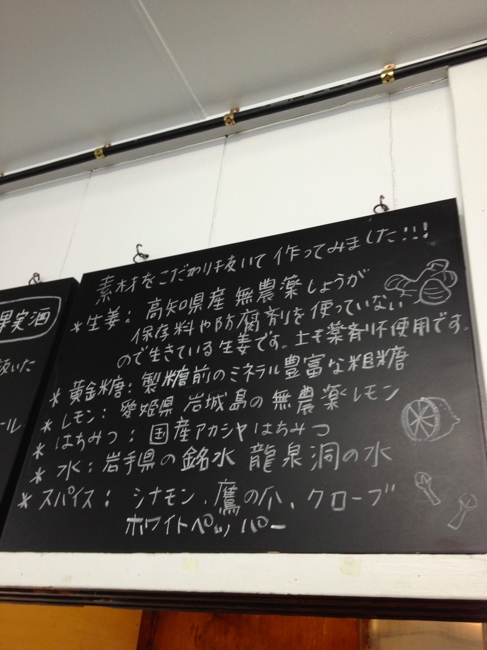 素材をこだわり抜いて作ってみました!!!
*生姜：高知県産無農薬しょうが
保存料や防腐剤を使っていない
ので生きている生姜です。土も薬剤不使用です。
*黄金糖：製糖前のミネラル豊富な粗糖
*レモン：愛媛県岩城島の無農薬レモン
*はちみつ：国産アカシヤはちみつ
*水：岩手県の銘水 龍泉洞の水
*スパイス：シナモン、鷹の爪、クローブ
ホワイトペッパー
果実酒
抜いた
ール